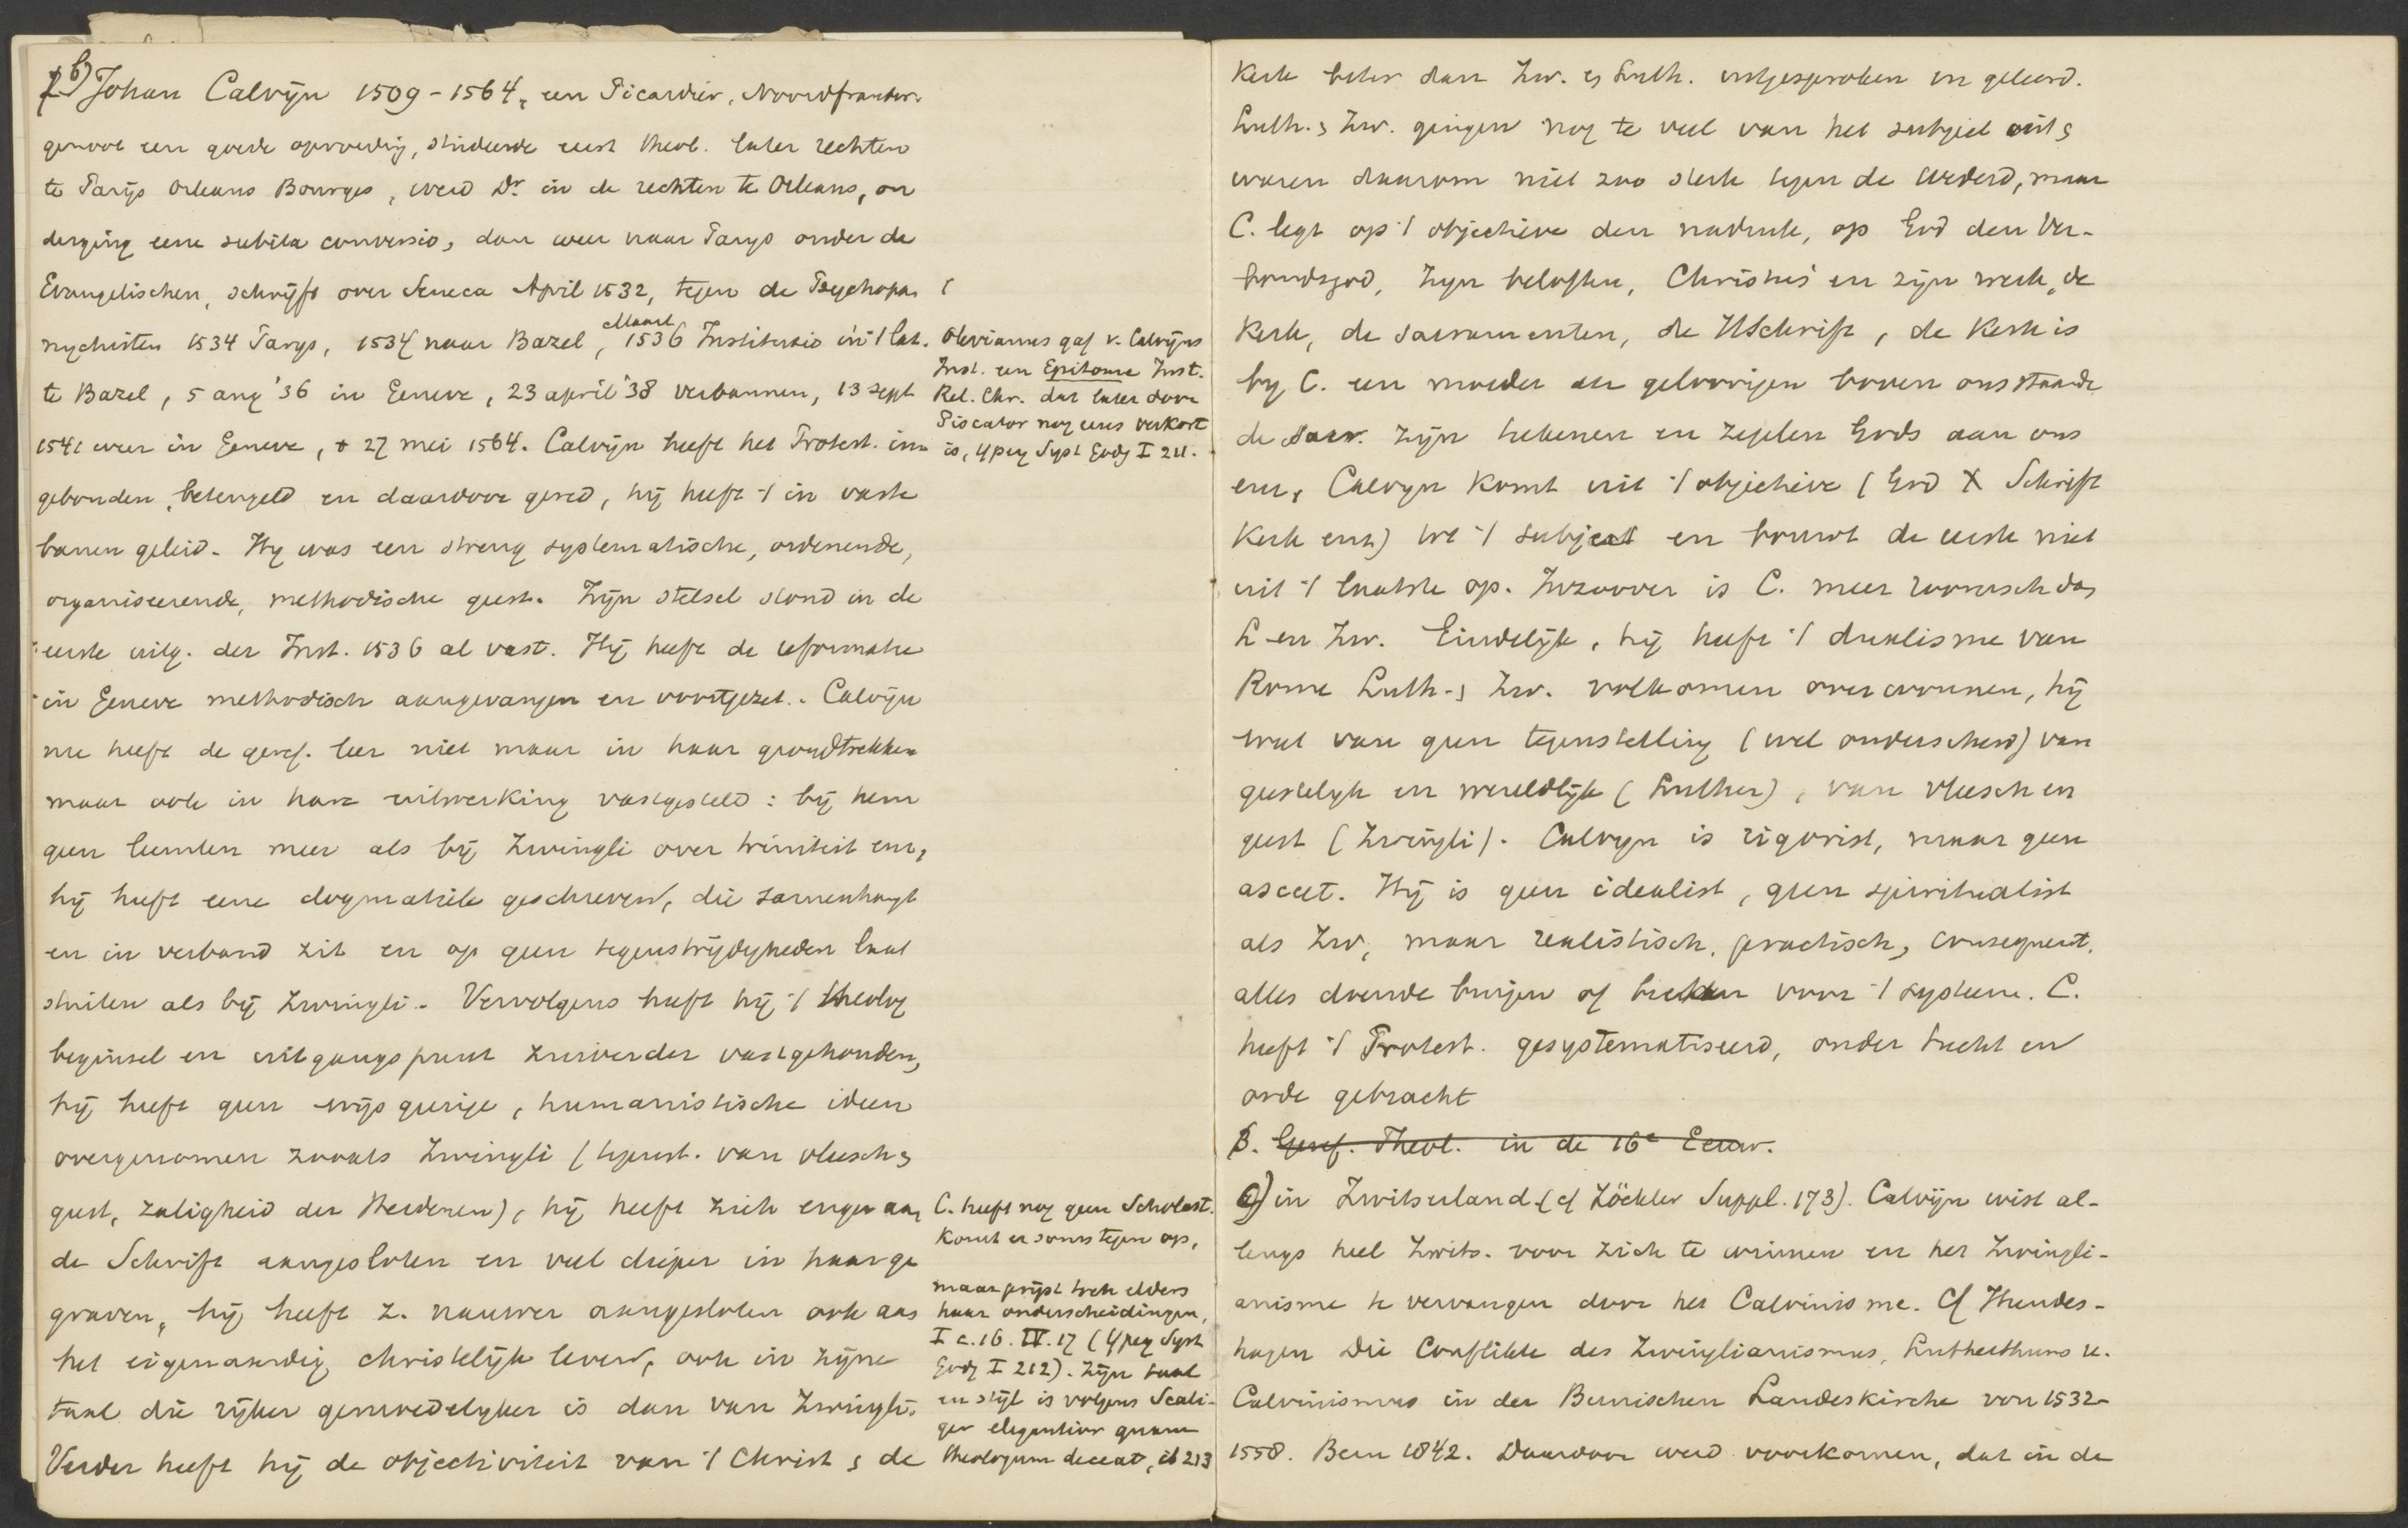 b) Johan Calvijn 1509-1564, een Picardiër, Noordfransm.
genoot een goede opvoeding, studeerde eerst theol. later rechten
te Parijs Orleans Bourges, werd Dr. in de rechten te Orleans, on
derging eene subita conversio, dan weer naar Parys onder de
Evangelischen, schrijft over Seneca April 1532, tegen de Psychopan
nychisten 1534 Parys, 1534 naar Bazel, Maart 1536 Institutio in 't lat.
te Bazel, 5 aug '36 in Geneve, 23 april '38 verbannen, 13 sept
1541 weer in Geneve, † 27 mei 1564. Calvijn heeft het Protest. in
gebonden, beteugeld en daardoor gered, hij heeft 't in vaste
banen geleid. Hy was een streng systematische, ordenende,
organiseerende, methodische geest. Zijn stelsel stond in de
eerste uitg. der Inst. 1536 al vast. Hij heeft de reformatie
in Geneve methodisch aangevangen en voortgezet. Calvijn
nu heeft de geref. leer niet maar in haar grondtrekken
maar ook in hare uitwerking vastgesteld: bij hem
geen leemten meer als bij Zwingli over triniteit enz,
hij heeft eene dogmatiek geschreven, die samenhangt
en in verband zit en op geen tegenstrijdigheden laat
stuiten als bij Zwingli. Vervolgens heeft hij 't theolog
beginsel en uitgangspunt zuiverder vastgehouden,
hij heeft geen wijsgeerige, humanistische ideen
overgenomen zooals Zwingli (tegenst. van vleesch &
geest, zaligheid der Heidenen), hij heeft zich enger aan
de Schrift aangesloten en veel dieper in haar ge
graven, hij heeft z. nauwer aangesloten ook aan
het eigenaardig christelijk leven, ook in zijne
taal die rijker gemoedelyker is dan van Zwingli.
Verder heeft hij de objectiviteit van 't Christ & de
Olevianus gaf v. Calvijns
Inst. een Epitome Inst.
Rel. Chr. dat later door
Piscator nog eens verkort
is, Ypey Syst Godg I 211.
C. heeft nog geen Scholast.
Komt er soms tegen op,
maar prijst toch elders
haar onderscheidingen,
I c. 16. IV. 17 (Ypey Syst
Godg I 212). Zijn taal
en stijl is volgens Scali-
ger elegantior quam
theologum deceat, ib 213
Kerk beter dan Zw. & Luth. uitgesproken en geleerd.
Luth. & Zw. gingen nog te veel van het subject uit &
waren daarom niet zoo sterk tegen de Wederd, maar
C. legt op 't objectieve den nadruk, op God den Ver-
bondsgod, Zijn beloften, Christus en zijn werk, de
Kerk, de sacramenten, de HSchrift, de Kerk is
by C. een moeder der geloovigen boven ons staande
de sacr. zijn teekenen en zegelen Gods aan ons
enz, Calvyn komt uit 't objectieve (God X Schrift
Kerk enz) tot 't subject en bouwt de eerste niet
uit 't laatste op. Inzoover is C. meer roomsch dan
L en Zw. Eindelijk, hij heeft 't dualisme van
Rome Luth. & Zw. volkomen overwonnen, hij
weet van geen tegenstelling (wel onderscheid) van
geestelyk en wereldlijk (Luther), van vleesch en
geest (Zwingli). Calvyn is rigorist, maar geen
asceet. Hij is geen idealist, geen spiritualist
als Zw, maar realistisch, practisch, consequent,
alles doende buigen of breken voor 't systeem. C.
heeft 't Protest. gesystematiseerd, onder tucht en
orde gebracht
B. Geref. Theol. in de 16e Eeuw.
a) in Zwitserland (cf Zöckler Suppl. 173). Calvijn wist al-
lengs heel Zwits. voor zich te winnen en het Zwingli-
anisme te vervangen door het Calvinisme. Cf Hundes-
hagen Die Conflikte des Zwinglianismus, Lutherthums u.
Calvinismus in der Bernischen Landeskirche von 1532-
1558. Bern 1842. Daardoor werd voorkomen, dat in de